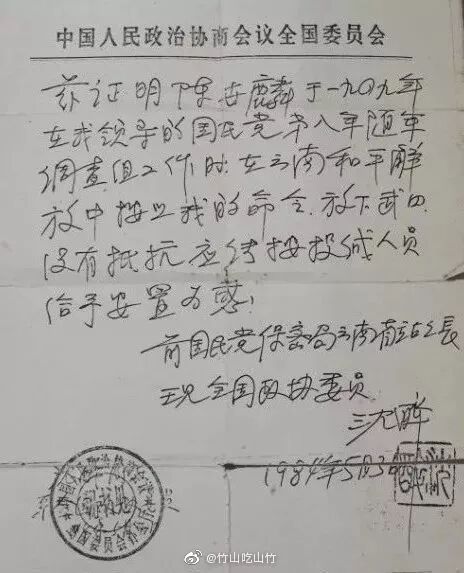 中国人民政治协商会议全国委员会
兹证明陈安麟于一九四九年
在我领导的国民党第八军随军
调查组工作时.在云南和平解
放中按照我的命令.放下武口.
没有抵抗应作按投诚人员
给予安置为感!
前国民党保密局云南站站长
现全国政协委员
沈醉
1984年5月3
@竹山吃山竹